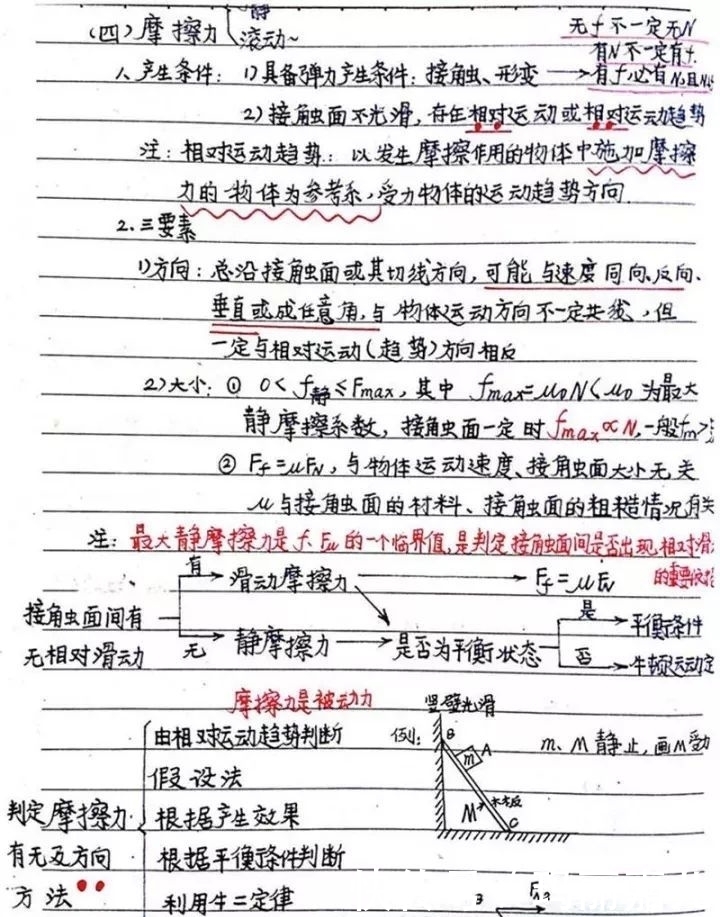 静
(四)摩擦力 滚动~
无f不一定无N
有N不一定有f.
1、产生条件: 1)具备弹力产生条件: 接触、形变 → 有f,必有N,且
2)接触面不光滑,存在相对运动或相对运动趋势
注: 相对运动趋势: 以发生摩擦作用的物体中施加摩擦
力的物体为参考系,受力物体的运动趋势方向
2.三要素
1)方向: 总沿接触面或其切线方向,可能与速度同向、反向、
垂直或成任意角,与物体运动方向不一定共线,但
一定与相对运动(趋势)方向相反
2)大小: ① 0<f静≤Fmax,其中 fmax=μ0N(μ0为最大
静摩擦系数,接触面一定时fmax∝N,一般fm>
② Ff=μFN,与物体运动速度、接触面大小无关
μ与接触面的材料、接触面的粗糙情况有关
注: 最大静摩擦力是 的一个临界值,是判定接触面间是否出现相对滑
的重要依据
有 → 滑动摩擦力 → Ff=μFN
接触面间有
无相对滑动
无 → 静摩擦力 → 是否为平衡状态
是 → 平衡条件
否 → 牛顿运动定
摩擦力是被动力
竖壁光滑
由相对运动趋势判断
例: B A m M C
m、M静止,画M受
假设法
判定摩擦力
有无及方向
方法
根据产生效果
根据平衡条件判断
利用牛二定律